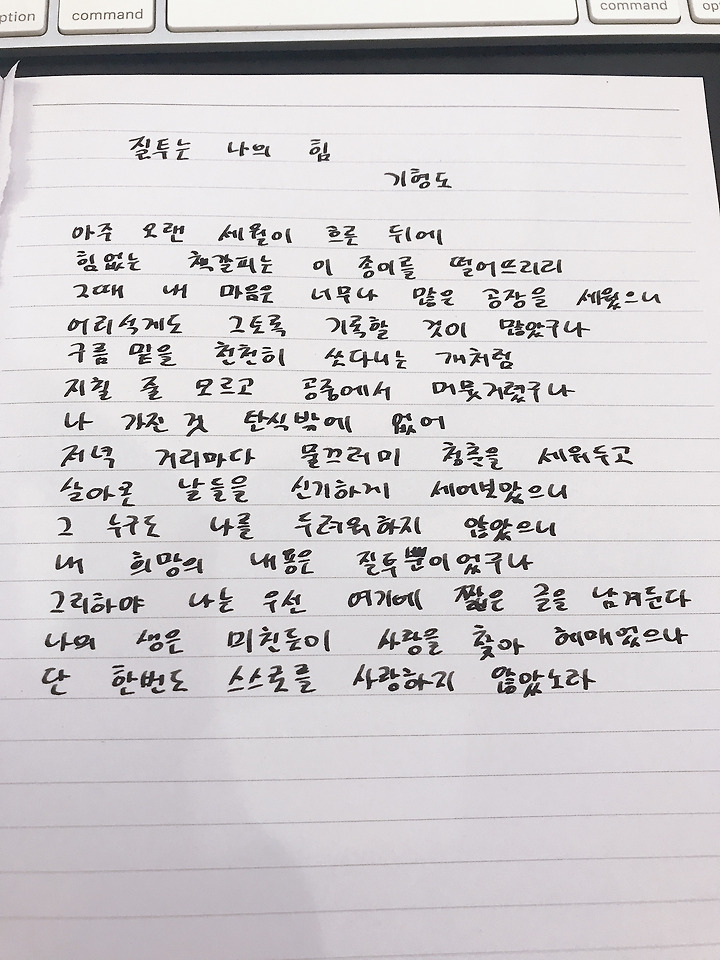 ption command command opt
질투는 나의 힘
기형도
아주 오랜 세월이 흐른 뒤에
힘없는 책갈피는 이 종이를 떨어뜨리리
그때 내 마음은 너무나 많은 공장을 세웠으니
어리석게도 그토록 기록할 것이 많았구나
구름 밑을 천천히 쏘다니는 개처럼
지칠 줄 모르고 공중에서 머뭇거렸구나
나 가진 것 탄식밖에 없어
저녁 거리마다 물끄러미 청춘을 세워두고
살아온 날들을 신기하게 세어보았으니
그 누구도 나를 두려워하지 않았으니
내 희망의 내용은 질투뿐이었구나
그리하야 나는 우선 여기에 짧은 글을 남겨둔다
나의 생은 미친듯이 사랑을 찾아 헤매었으나
단 한번도 스스로를 사랑하지 않았노라